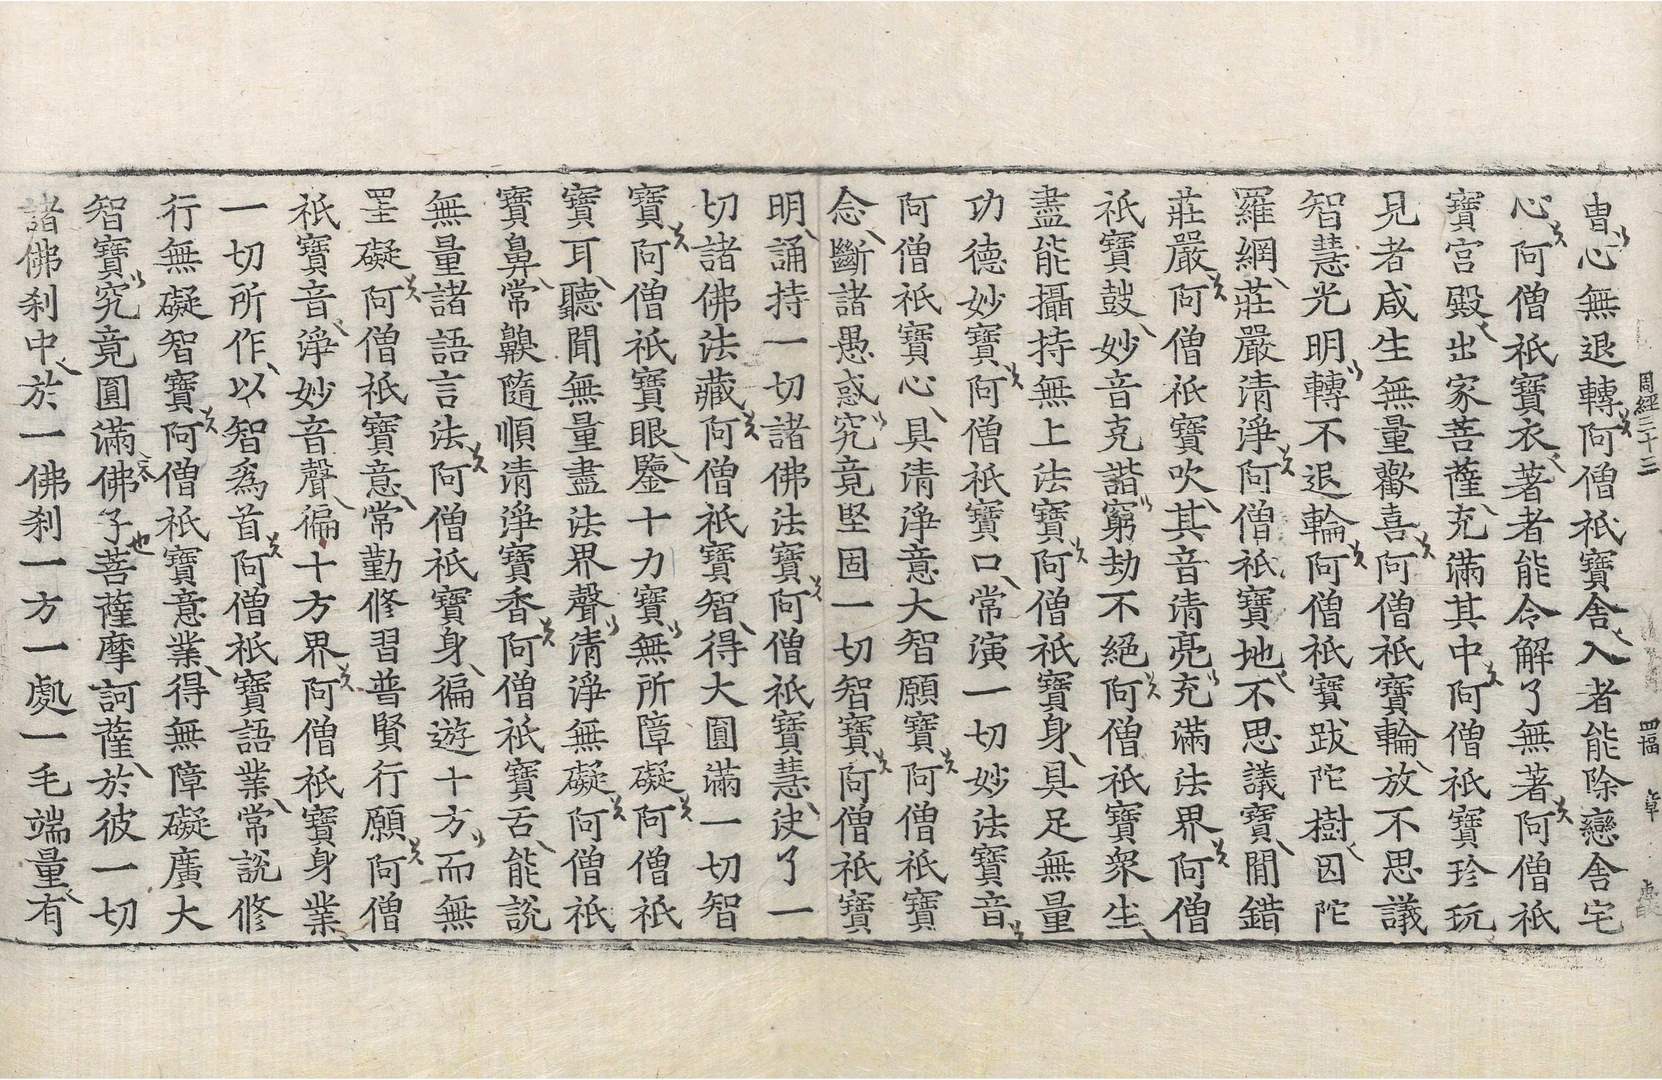 周經三十三
冑心無退轉阿僧祇寶舍入者能除戀舍宅
心阿僧祇寶衣著者能令解了無著阿僧祇
寶宮殿出家菩薩充滿其中阿僧祇寶珍玩
見者咸生無量歡喜阿僧祇寶輪放不思議
智慧光明轉不退輪阿僧祇寶跋陀樹因陀
羅網莊嚴清淨阿僧祇寶地不思議寶間錯
莊嚴阿僧祇寶吹其音清亮充滿法界阿僧
祇寶鼓妙音克諧窮劫不絕阿僧祇寶衆生
盡能攝持無上法寶阿僧祇寶身具足無量
功德妙寶阿僧祇寶口常演一切妙法寶音
阿僧祇寶心具清淨意大智願寶阿僧祇寶
念斷諸愚惑究竟堅固一切智寶阿僧祇寶
明誦持一切諸佛法寶阿僧祇寶慧決了一
切諸佛法藏阿僧祇寶智得大圓滿一切智
寶阿僧祇寶眼鑒十力寶無所障礙阿僧祇
寶耳聽聞無量盡法界聲清淨無礙阿僧祇
寶鼻常齅隨順清淨寶香阿僧祇寶舌能說
無量諸語言法阿僧祇寶身徧遊十方而無
罣礙阿僧祇寶意常勤修習普賢行願阿僧
祇寶音淨妙音聲徧十方界阿僧祇寶身業
一切所作以智爲首阿僧祇寶語業常說修
行無礙智寶阿僧祇寶意業得無障礙廣大
智寶究竟圓滿佛子菩薩摩訶薩於彼一切
諸佛刹中於一佛刹一方一處一毛端量有